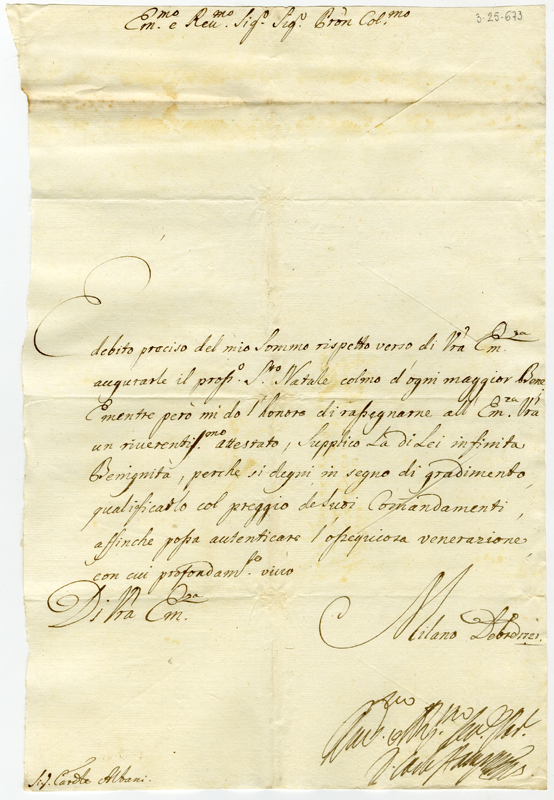 Em.mo e Reu.mo Sig.r Sig.r Pron Col.mo
3-25-673
E
debito preciso del mio Sommo rispetto verso di Vrã Em.za
augurarle il pross.o S.to Natale colmo d'ogni maggior Bene
E mentre però mi do l'honore di rassegnarne all' Em.za Vrã
un riverentiss.mo attestato, Supplico La di Lei infinita
Benignità, perche si degni in segno di gradimento,
qualificarlo col preggio de suoi Comandamenti,
affinche possa autenticare l'ossequiosa venerazione,
con cui profondam.te vivo
Di Vrã Em.za
Milano
Sig. Cardle Albani.